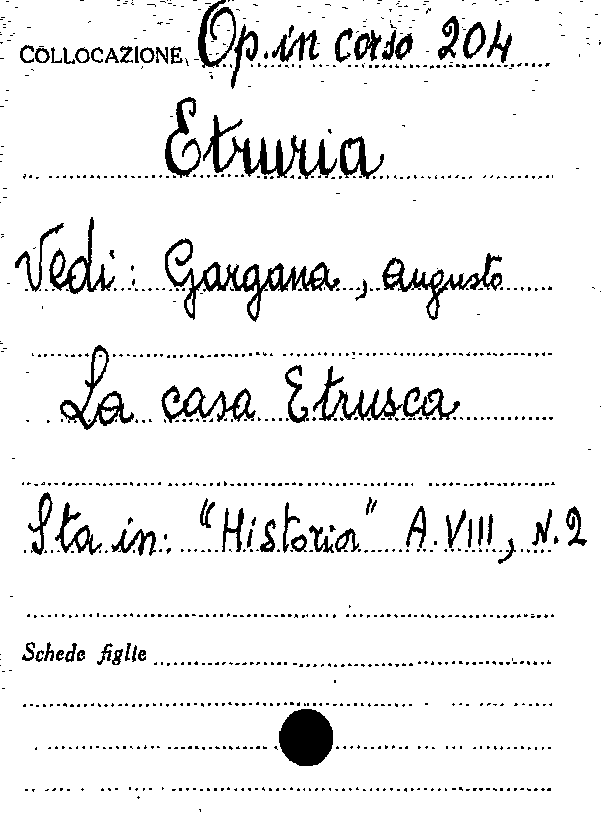 COLLOCAZIONE Op. in corso 204
Etruria
Vedi: Gargana, Augusto
La casa Etrusca
Sta in: "Historia" A. VIII, N. 2
Schede figlie